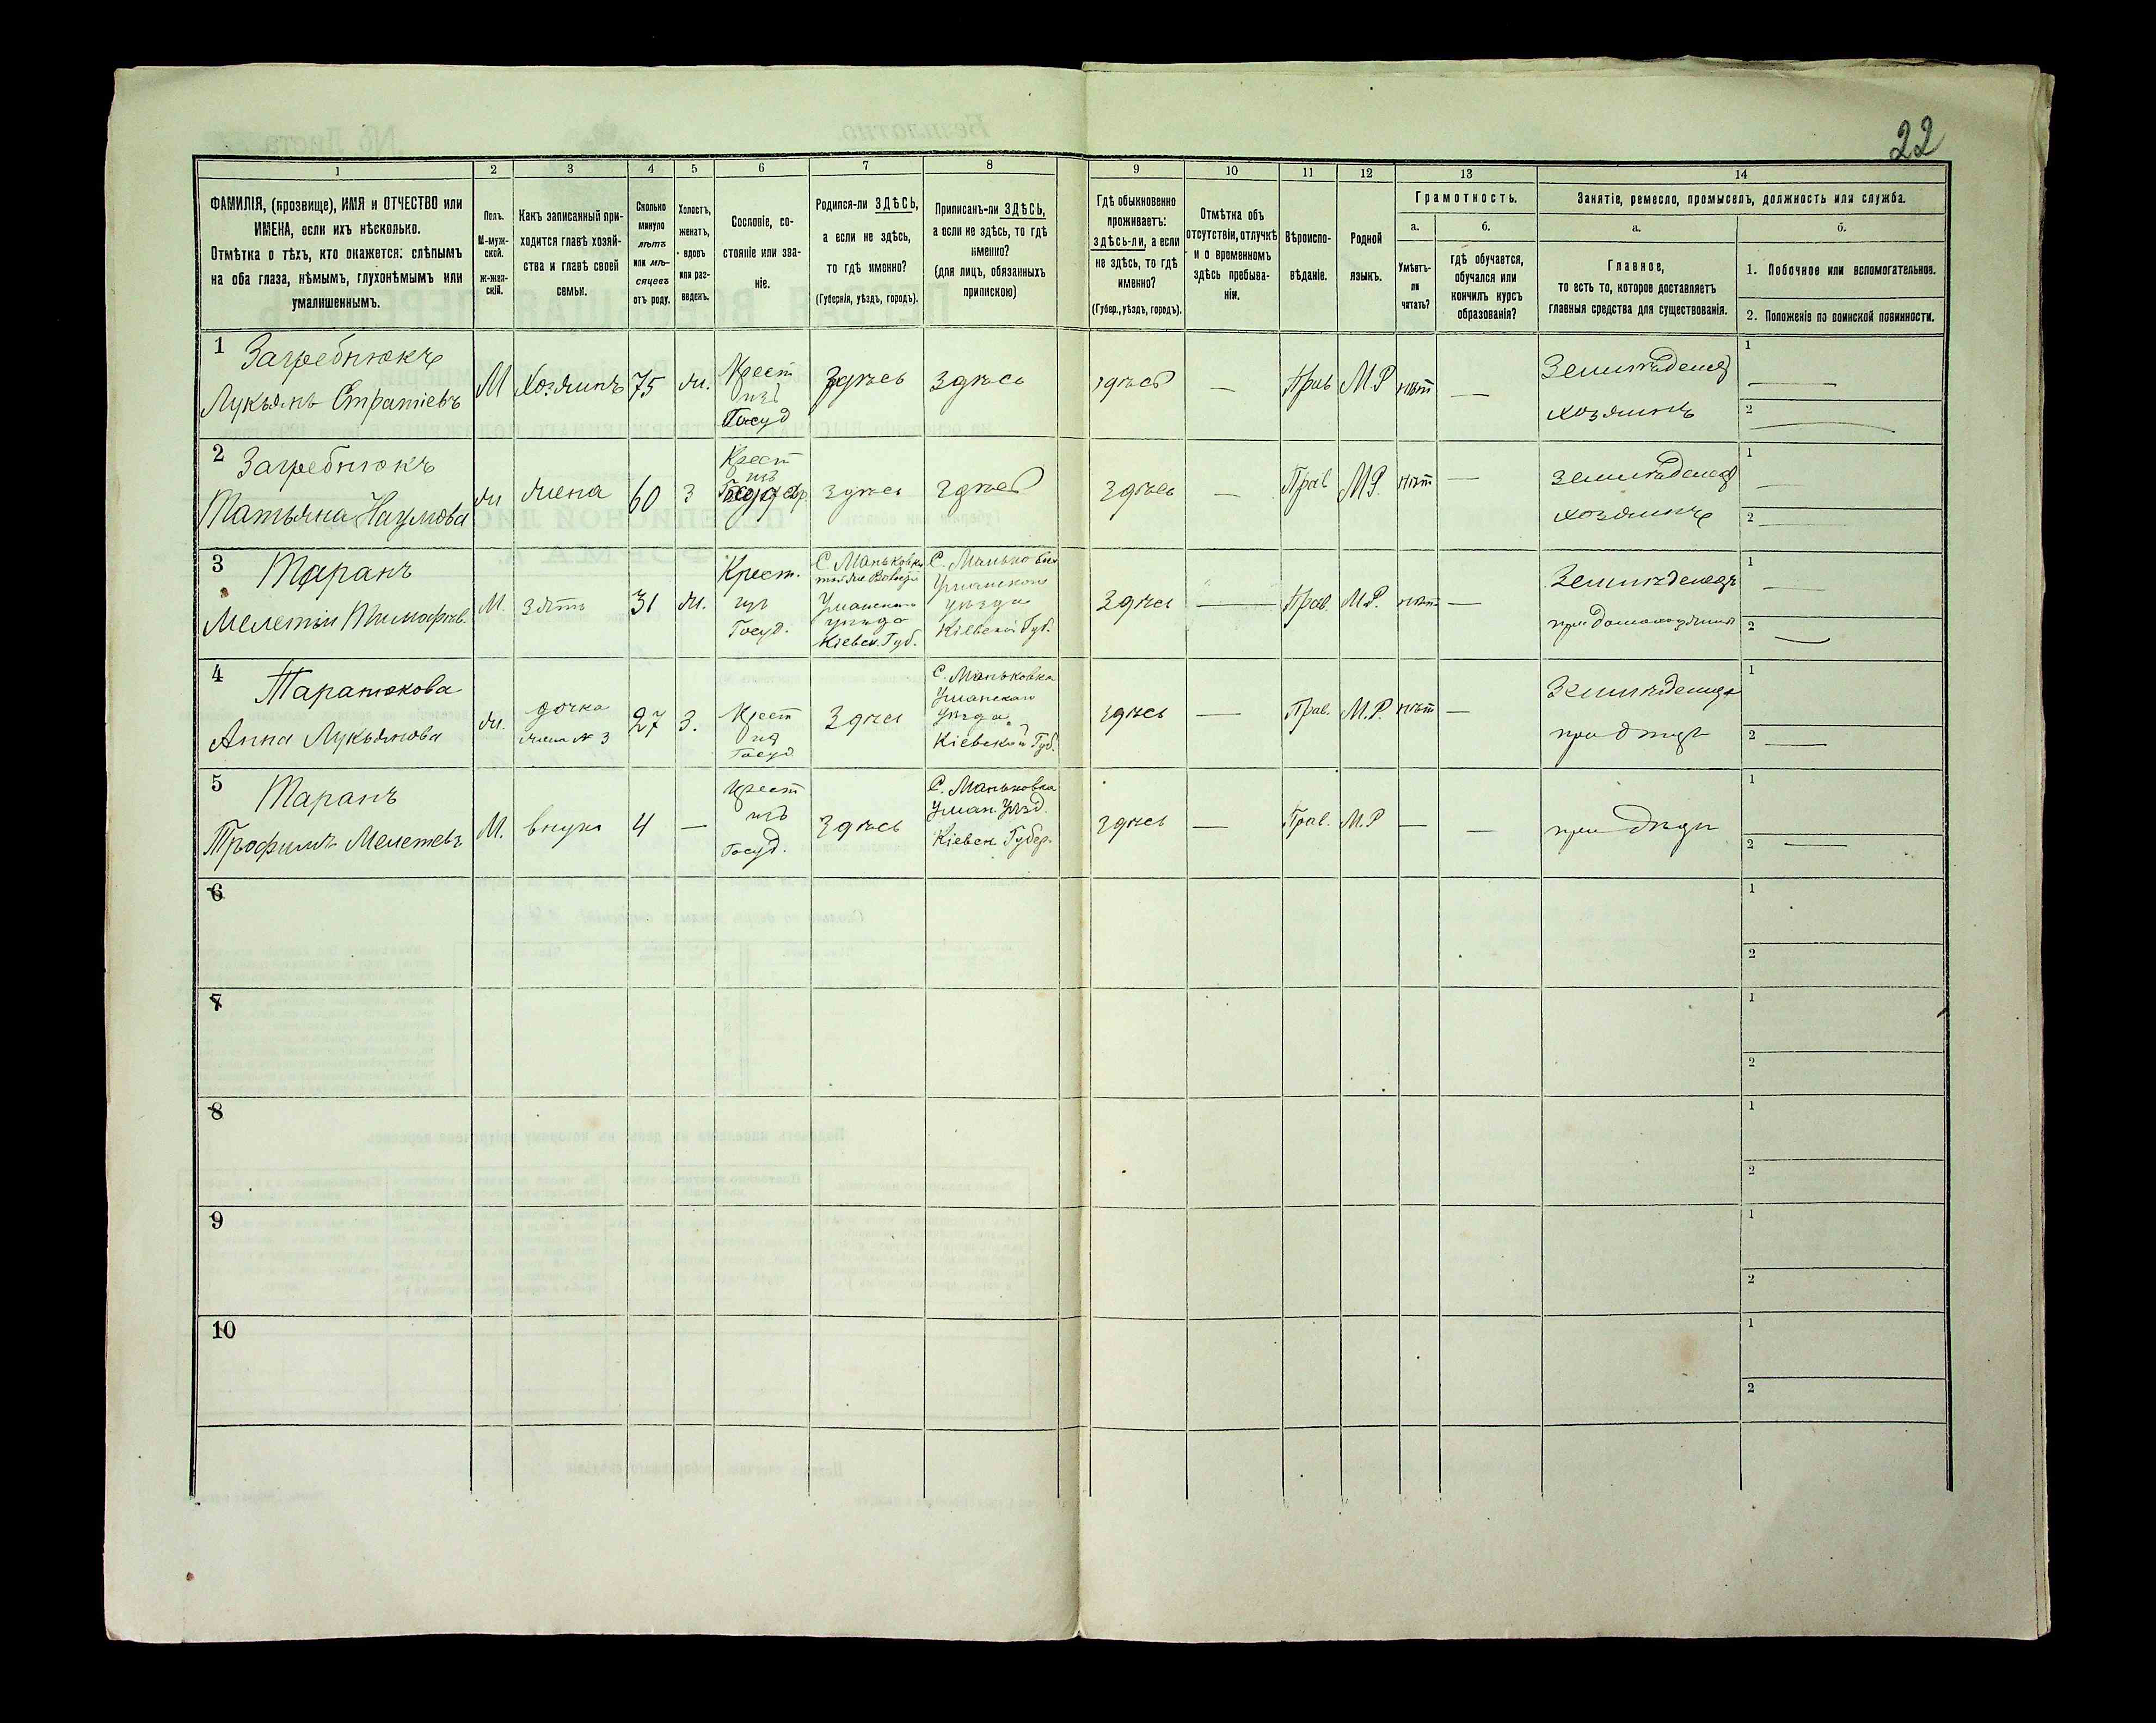 22
1
2
3
4
5
6
7
8
9
10
11
12
13
14
ФАМИЛІЯ, (прозвище), ИМЯ и ОТЧЕСТВО или
ИМЕНА, если ихъ нѣсколько.
Отмѣтка о тѣхъ, кто окажется: слѣпымъ
на оба глаза, нѣмымъ, глухонѣмымъ или
умалишеннымъ.
Полъ.
М-муж-
ской.
Ж-жен-
скій.
Какъ записанный при-
ходится главѣ хозяй-
ства и главѣ своей
семьи.
Сколько
минуло
лѣтъ
или мѣ-
сяцевъ
отъ роду.
Холостъ,
женатъ,
вдовъ
или раз-
веденъ.
Сословіе, со-
стояніе или зва-
ніе.
Родился-ли ЗДѢСЬ,
а если не здѣсь,
то гдѣ именно?
(Губернія, уѣздъ, городъ).
Приписанъ-ли ЗДѢСЬ,
а если не здѣсь, то гдѣ
именно?
(для лицъ, обязанныхъ
припискою)
Гдѣ обыкновенно
проживаетъ:
здѣсь-ли, а если
не здѣсь, то гдѣ
именно?
(Губер., уѣздъ, городъ).
Отмѣтка объ
отсутствіи, отлучкѣ
и о временномъ
здѣсь пребыва-
ніи.
Вѣроиспо-
вѣданіе.
Родной
языкъ.
Грамотность.
а.
Умѣетъ-
ли
читать?
б.
гдѣ обучается,
обучался или
кончилъ курсъ
образованія?
Занятіе, ремесло, промыселъ, должность или служба.
а.
Главное,
то есть то, которое доставляетъ
главныя средства для существованія.
б.
1. Побочное или вспомогательное.
2. Положеніе по воинской повинности.
1
Загребнюкъ
Лукьянъ Стратіевъ
М
Хозяинъ
75
ж.
Крест
изъ
Госуд
Здѣсь
Здѣсь
здѣсь
—
Прав
М.Р
нѣт
—
Земледѣлец
хозяинъ
1
—
2
—
2
Загребнюкъ
Татьяна Наумова
ж
жена
60
З
Крест
изъ
Здѣсь
Здѣсь
Здѣсь
—
Прав
М.Р.
нѣт
—
земледѣлец
хозяинъ
1
—
2
—
3
Таранъ
Мелетій Тимофѣев.
М.
зять
31
ж.
Крест.
изъ
Госуд.
С. Маньковка
Уманскаго
уѣзда
Кіевск. Губ.
С. Маньковка
Уманскаго
уѣзда
Кіевской Губ.
Здѣсь
—
Прав.
М.Р.
нѣт
—
Земледѣлецъ
1
—
2
—
4
Таранюкова
Анна Лукьянова
ж.
дочка
жена № 3
27
З.
Крест
из
Госуд
Здѣсь
С. Маньковка
Уманскаго
Уѣзда
Кіевской Губ.
здѣсь
—
Прав.
М.Р.
нѣт
—
Земледѣлецъ
1
—
2
—
5
Таранъ
Трофимъ Мелетевъ
М.
внукъ
4
—
Крест
изъ
Госуд.
Здѣсь
С. Маньковка
Уман. Уѣзд.
Кіевск. Губер.
здѣсь
—
Прав.
М.Р
—
—
при дѣдѣ
1
2
—
6
1
2
7
1
2
8
1
2
9
1
2
10
1
2